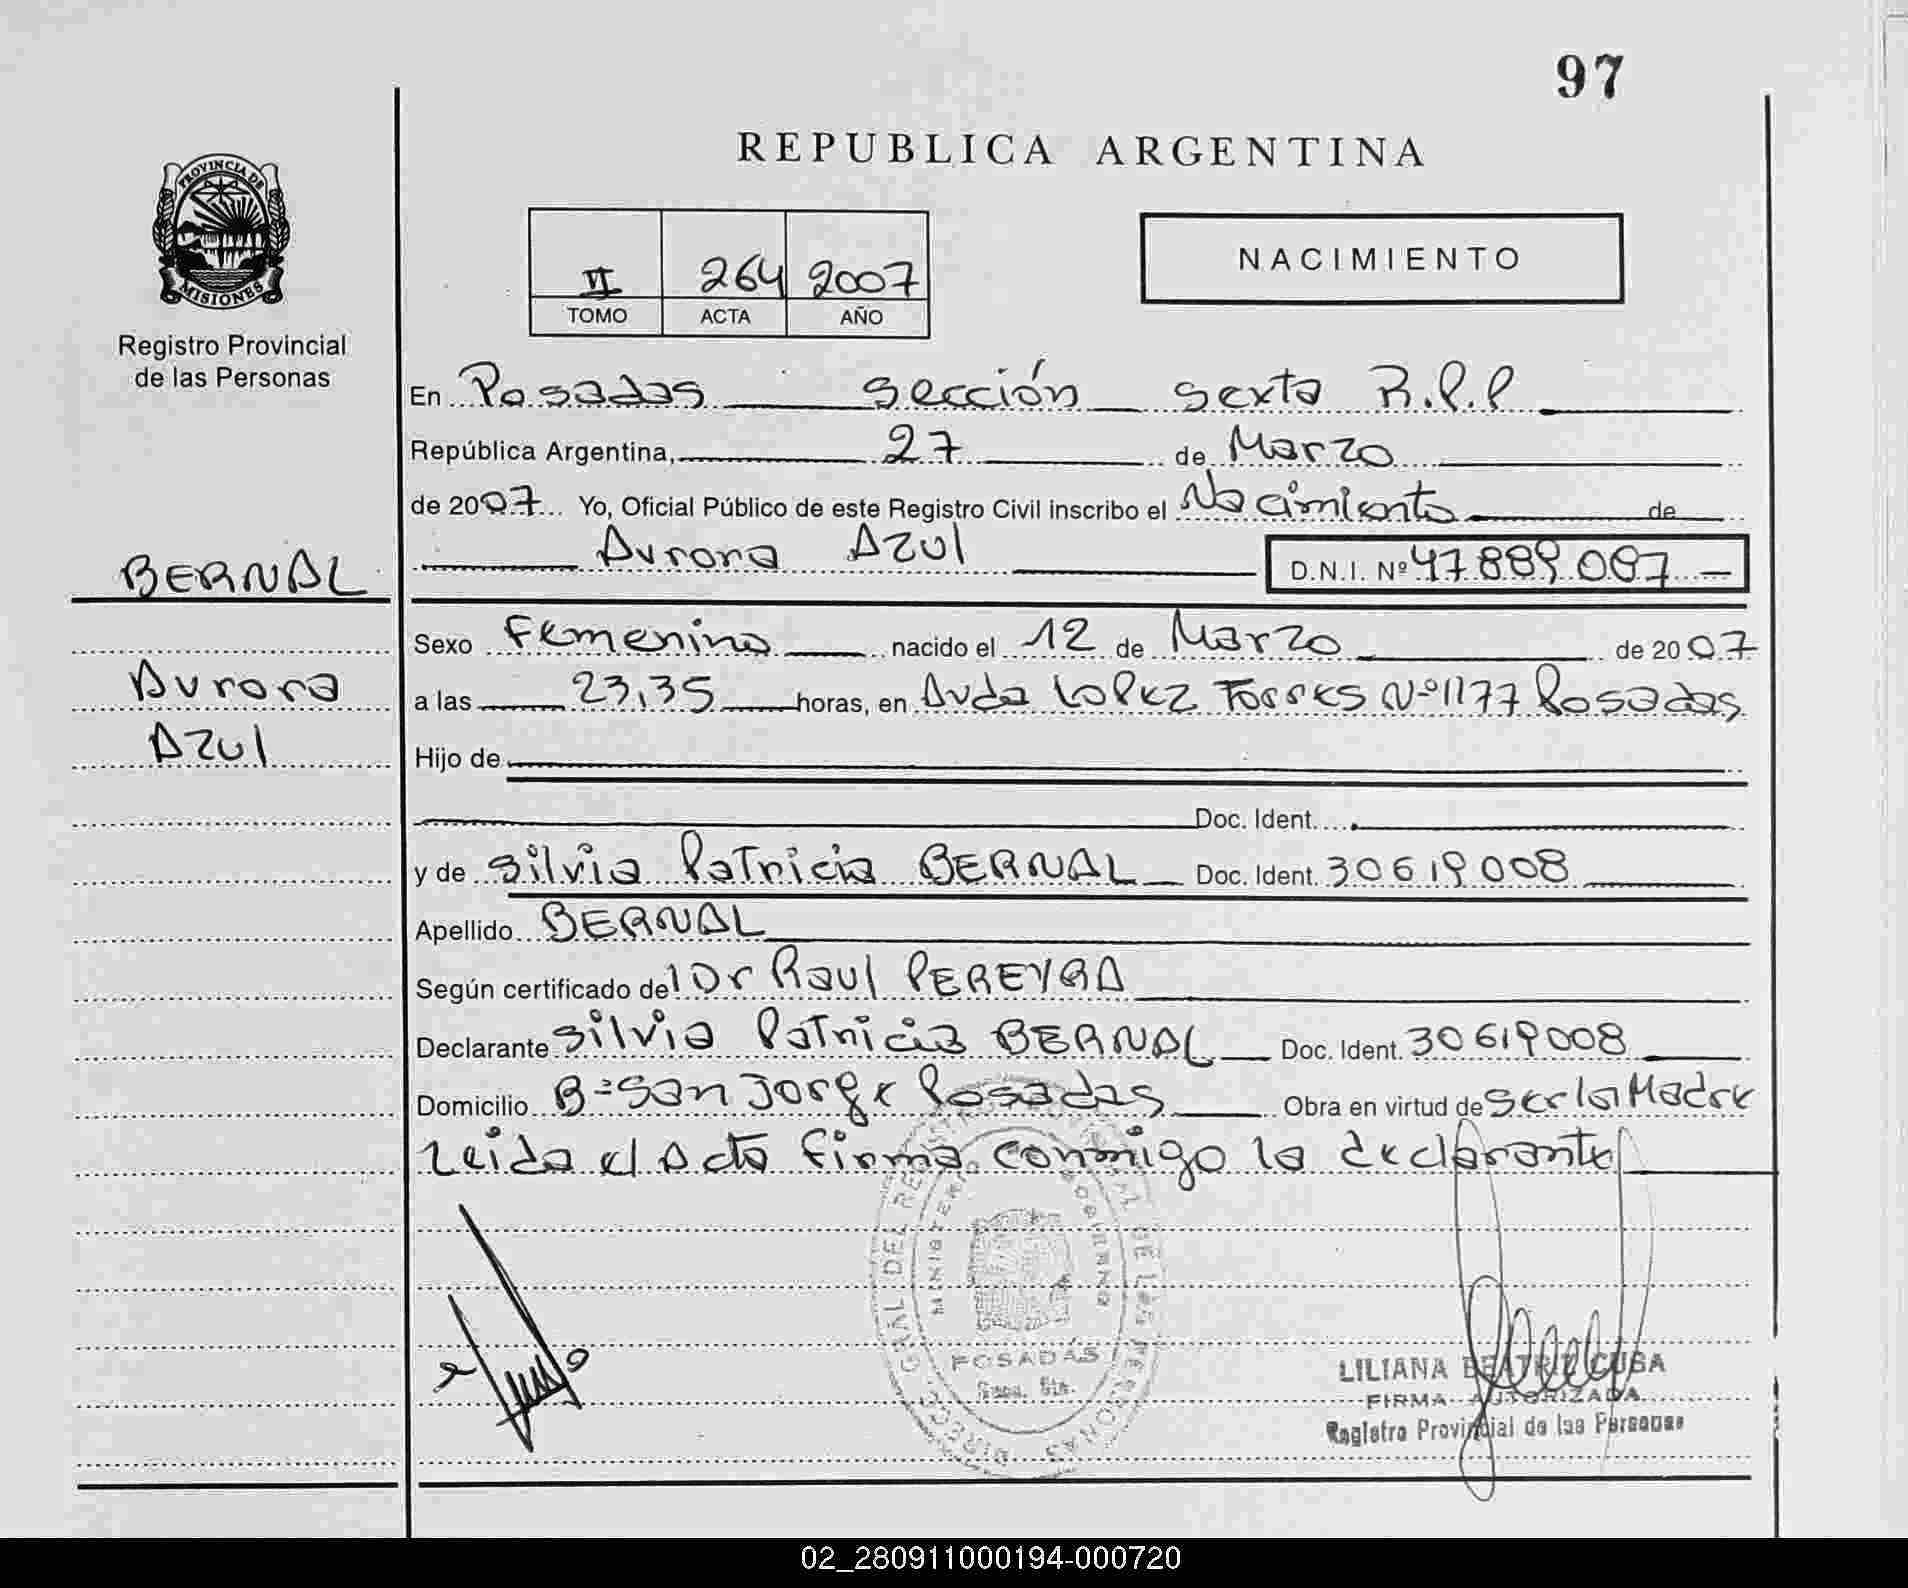 97
REPUBLICA ARGENTINA
PROVINCIA DE
MISIONES
Registro Provincial
de las Personas
264 2007
TOMO ACTA AÑO
NACIMIENTO
En Posadas sección sexta R.P.P
República Argentina, 27 de Marzo
de 2007 Yo, Oficial Público de este Registro Civil inscribo el Nacimiento de
Aurora Azul D.N.I. Nº 47.889.087
BERNAL
Sexo Femenino nacido el 12 de Marzo de 2007
Aurora
a las 23,35 horas, en Avda Lopez Torres Nº 1177 Posadas
Azul
Hijo de
Doc. Ident.
y de Silvia Patricia BERNAL Doc. Ident. 30619008
Apellido BERNAL
Según certificado del Dr Raul PEREYRA
Declarante Silvia Patricia BERNAL Doc. Ident. 30619008
Domicilio Bº San Jorge Posadas Obra en virtud de ser la Madre
Leida el Acta firma conmigo la declarante
MINISTERIO GOBIERNO
POSADAS
LILIANA BEATRIZ CUBA
FIRMA AUTORIZADA
Registro Provincial de las Personas
02_280911000194-000720